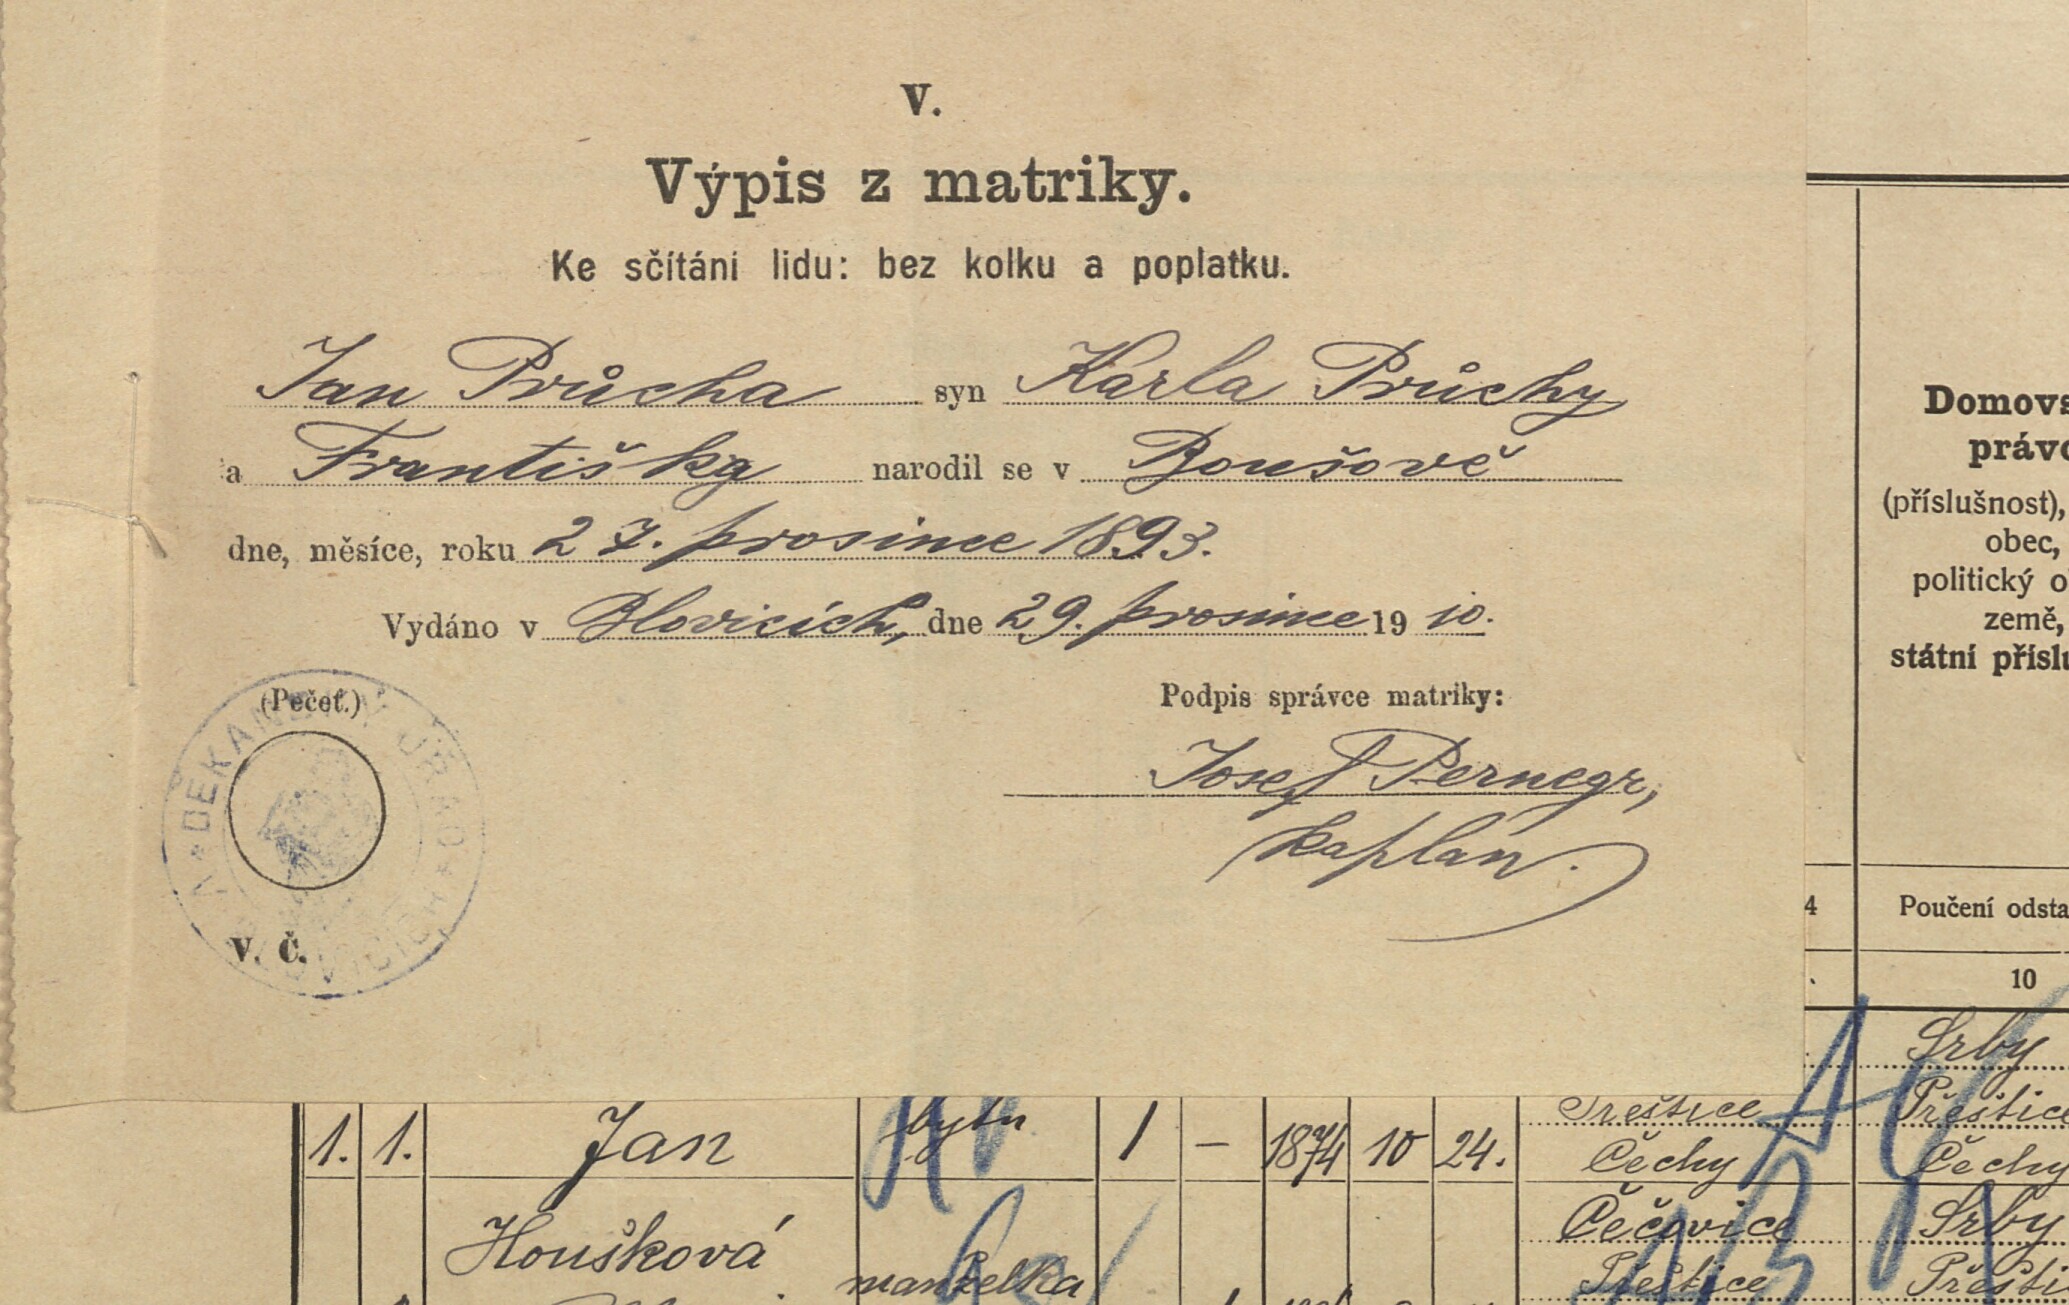 V.
Výpis z matriky.
Ke sčítání lidu: bez kolku a poplatku.
Jan Průcha syn Karla Průchy
a Františky narodil se v Boušově
dne, měsíce, roku 27. prosince 1893.
Vydáno v Blovicích, dne 29. prosince 19 10.
(Pečeť.)
Podpis správce matriky:
Josef Pernegr,
kaplan.
DĚKANSKÝ ÚŘAD
V BLOVICÍCH
V. Č.
Domovs
právo
(příslušnost),
obec,
politický o
země,
státní příslu
4 Poučení odsta
10
Srby
bytu Přeštice Přeštice
1. 1. Jan 1 – 1874 10 24. Čechy Čechy
Čečovice Srby
Houšková
manželka Přeštice Přešti